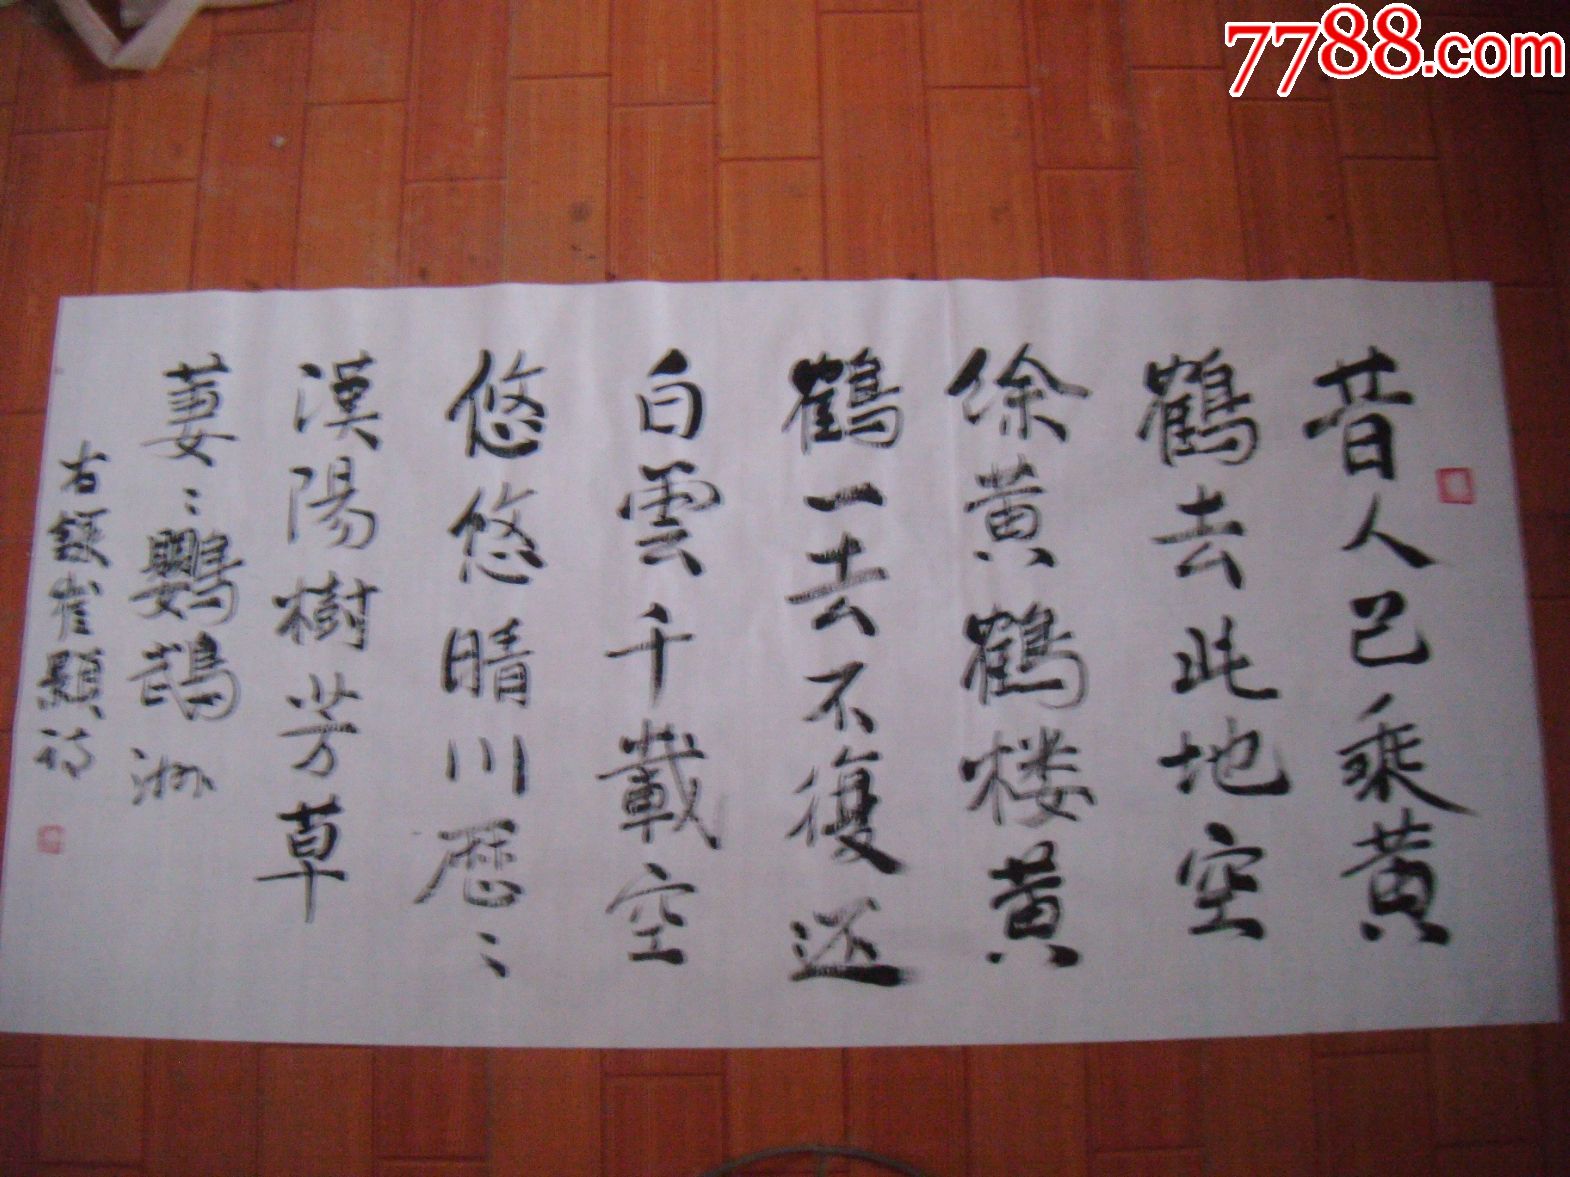 昔人已乘黄
鶴去此地空
余黄鶴楼黄
鶴一去不復还
白雲千載空
悠悠晴川歷〻
漢陽樹芳草
萋〻鸚鵡洲
右錄崔顥詩
7788.com